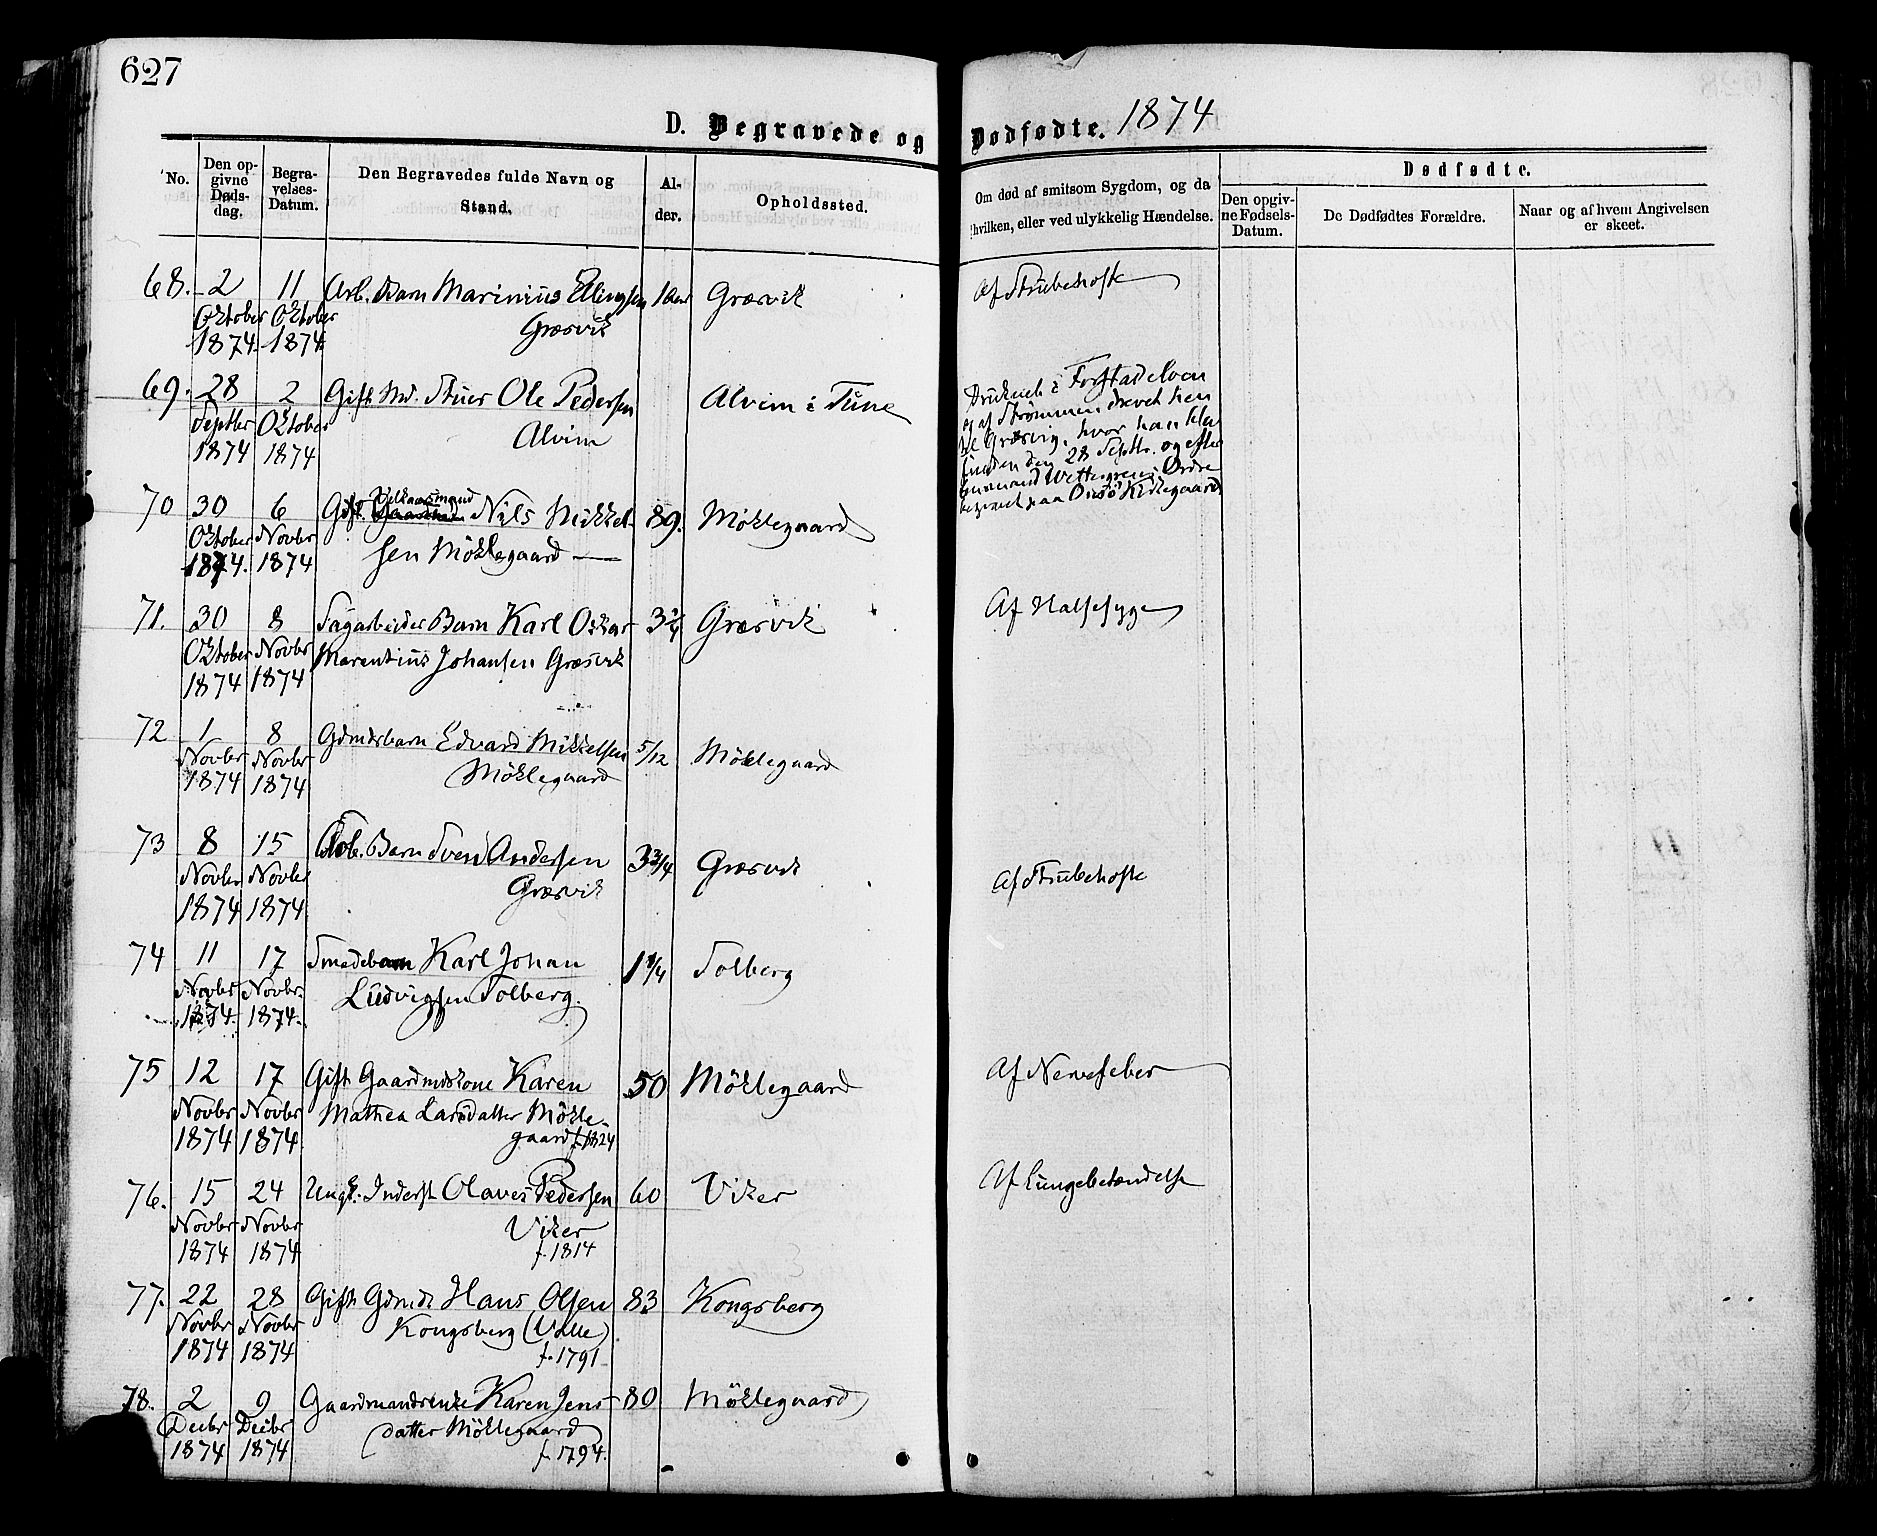 627
D. Begravede og Dødfødte. 1874
No.
Den op-
givne
Døds-
dag.
Begra-
velses-
Datum.
Den Begravedes fulde Navn og
Stand.
Al-
der.
Opholdssted.
Om død af smitsom Sygdom, og da
hvilken, eller ved ulykkelig Hændelse.
Dødfødte.
Den opgiv-
ne Fødsels-
Datum.
De Dødfødtes Forældre.
Naar og af hvem Angivelsen
er skeet.
68. 2 11 Arb. Barn Marinius Ellingsen Græsvik Af Strubehoste
Oktober Oktober Græsvik
1874 1874
69. 28 2 Gift Md. Stuer Ole Pedersen Alvim i Tune
Septbr Oktober Alvim
1874 1874
Druknet i Forstadelven
og af Strømmen drevet hen
til Græsvig, hvor han blev
funden den 28 Septbr. og efter
Wettergrens Ordre
begravet paa Onsø Kirkegaard
70 30 6 Gift Nils Mikkel- 89. Möklegaard
Oktober Novbr sen Möklegaard
1874. 1874
71. 30 8 Sagarbeider Barn Karl Oskar 3 1/4 Græsvik Af Halsesyge
Oktober Novbr Marentius Johansen Græsvik
1874 1874
72 1 8 Gdmdsbarn Edvard Mikkelsen 5/12 Möklegaard
Novbr Novbr Möklegaard
1874 1874
73 8 15 Arb. Barn Sven Andersen 3 3/4 Græsvik Af Strubehoste
Novbr Novbr Græsvik
1874 1874
74 11 17 Smedebarn Karl Johan 1 1/4 Solberg
Novbr Novbr. Ludvigsen Solberg.
1874. 1874.
75 12 17 Gift Gaardmdskone Karen 50 Möklegaard Af Nervefeber
Novbr Novbr Mathea Larsdatter Mökle-
1874 1874 gaard f. 1824
76. 15 24 Ungk. Inderst Olaves Pedersen 60 Viker Af Lungebetændelse
Novbr Novbr Viker
1874 1874 f. 1814
77. 22 28 Gift Gdmd. Hans Olsen 83 Kongsberg
Novbr Novbr Kongsberg (Valle)
1874 1874 f. 1791
78. 2 9 Gaardmandsenke Karen Jens- 80 Möklegaard
Decbr Decbr datter Möklegaard
1874 1874 f. 1794.